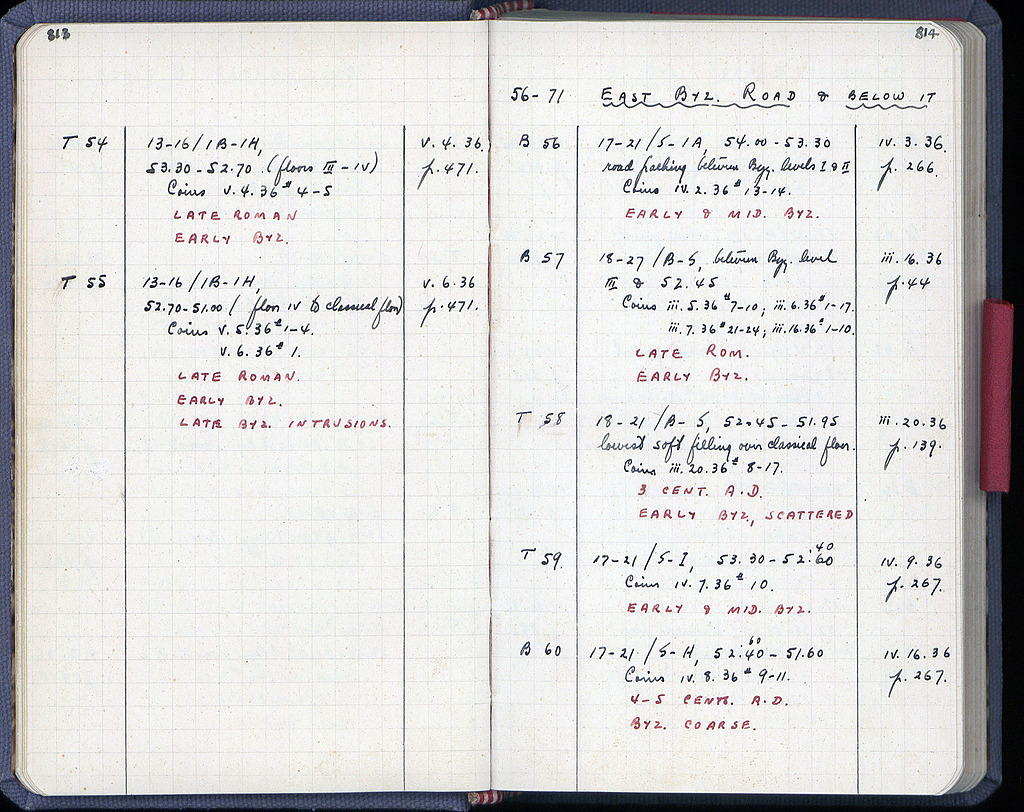 813
T 54 13-16/1B-1H, v. 4. 36.
53.30-52.70. (floors III-IV) p. 471.
Coins v. 4. 36 # 4-5
LATE ROMAN
EARLY BYZ.
T 55 13-16/1B-1H, v. 6. 36
52.70-51.00 (floor IV to classical floor) p. 471.
Coins v. 5. 36 # 1-4.
v. 6. 36 # 1.
LATE ROMAN.
EARLY BYZ.
LATE BYZ. INTRUSIONS.
814
56-71 EAST BYZ. ROAD & BELOW IT
B 56 17-21/5-1A, 54.00-53.30 iv. 3. 36.
road packing between Byz. levels I & II p. 266.
Coins iv. 2. 36 # 13-14.
EARLY & MID. BYZ.
B 57 18-27/B-5, between Byz. level iii. 16. 36
III & 52.45 p. 44
Coins iii. 5. 36 # 7-10; iii. 6. 36 # 1-17.
iii. 7. 36 # 21-24; iii. 16. 36 # 1-10.
LATE ROM.
EARLY BYZ.
T 58 18-21/B-5, 52.45-51.95 iii. 20. 36
lowest soft filling over classical floor. p. 139.
Coins iii. 20. 36 # 8-17.
3 CENT. A.D.
EARLY BYZ, SCATTERED
40
T 59. 17-21/5-I, 53.30-52.60 iv. 9. 36
Coins iv. 7. 36 # 10. p. 267.
EARLY & MID. BYZ.
60
B 60 17-21/5-H, 52.40-51.60 iv. 16. 36
Coins iv. 8. 36 # 9-11. p. 267.
4-5 CENTS. A.D.
BYZ. COARSE.